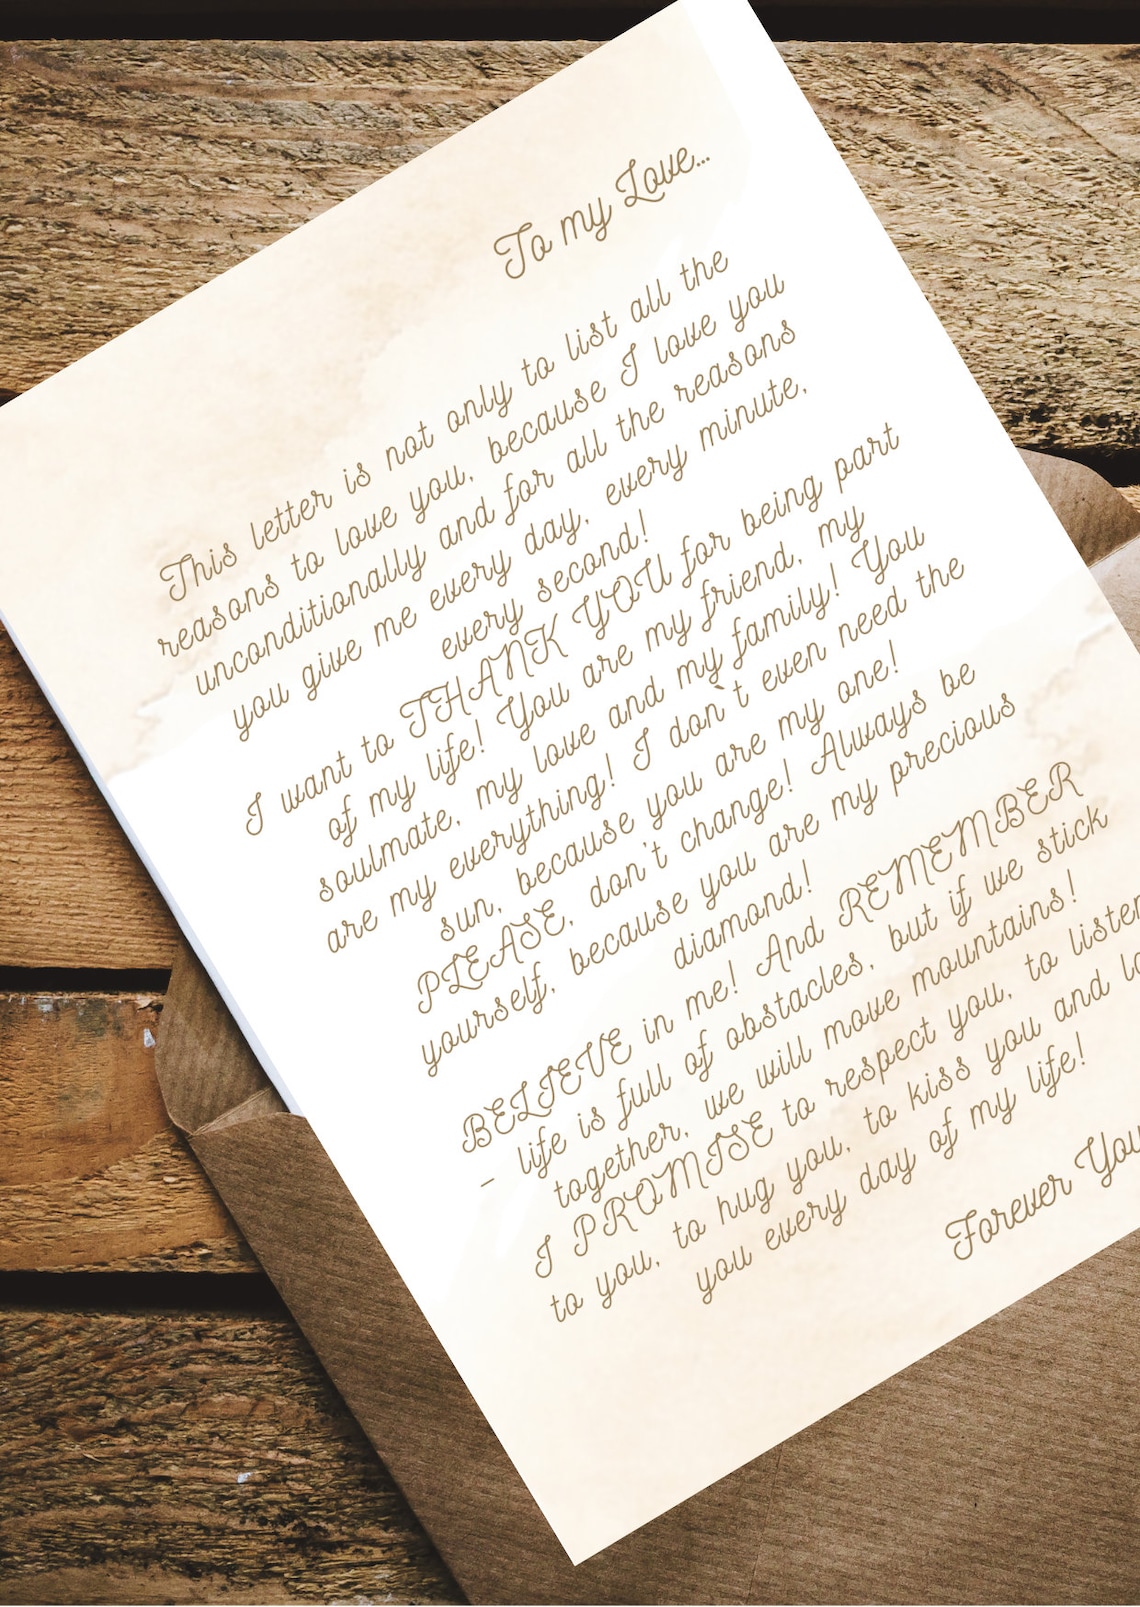 To my Love...
This letter is not only to list all the
reasons to love you, because I love you
unconditionally and for all the reasons
you give me every day, every minute,
every second!
I want to THANK YOU for being part
of my life! You are my friend, my
soulmate, my love and my family! You
are my everything! I don`t even need the
sun, because you are my one!
PLEASE, don't change! Always be
yourself, because you are my precious
diamond!
BELIEVE in me! And REMEMBER
- life is full of obstacles, but if we stick
together, we will move mountains!
I PROMISE to respect you, to listen
to you, to hug you, to kiss you and
you every day of my life!
Forever